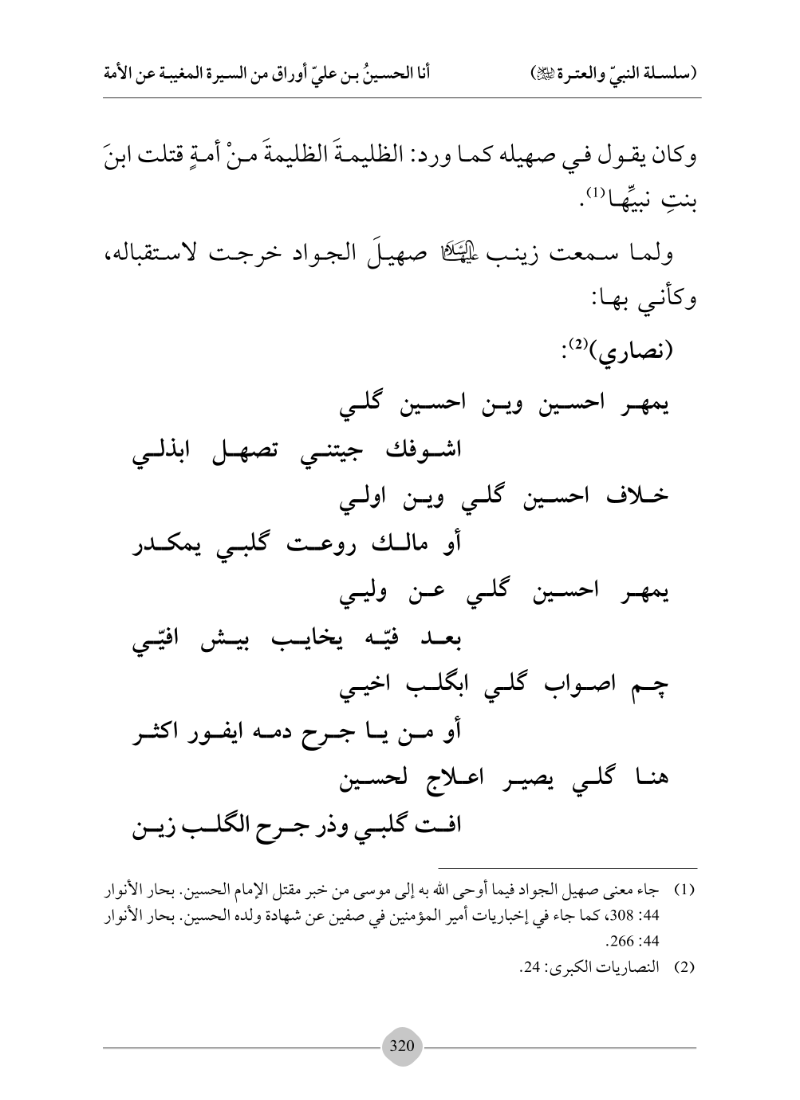 (سلسلة النبيّ والعترة ﷺ) أنا الحسينُ بن عليّ أوراق من السيرة المغيبة عن الأمة
وكان يقول في صهيله كما ورد: الظليمةَ الظليمةَ منْ أمةٍ قتلت ابنَ
بنتِ نبيِّها(1).
ولما سمعت زينب عليها السلام صهيلَ الجواد خرجت لاستقباله،
وكأني بها:
(نصاري)(2):
يمهر احسين وين احسين گلي
اشوفك جيتني تصهل ابذلي
خلاف احسين گلي وين اولي
أو مالك روعت گلبي يمكدر
يمهر احسين گلي عن وليي
بعد فيّه يخايب بيش افيّي
چم اصواب گلي ابگلب اخيي
أو من يا جرح دمه ايفور اكثر
هنا گلي يصير اعلاج لحسين
افت گلبي وذر جرح الگلب زين
(1) جاء معنى صهيل الجواد فيما أوحى الله به إلى موسى من خبر مقتل الإمام الحسين. بحار الأنوار
44: 308، كما جاء في إخباريات أمير المؤمنين في صفين عن شهادة ولده الحسين. بحار الأنوار
44: 266.
(2) النصاريات الكبرى: 24.
320